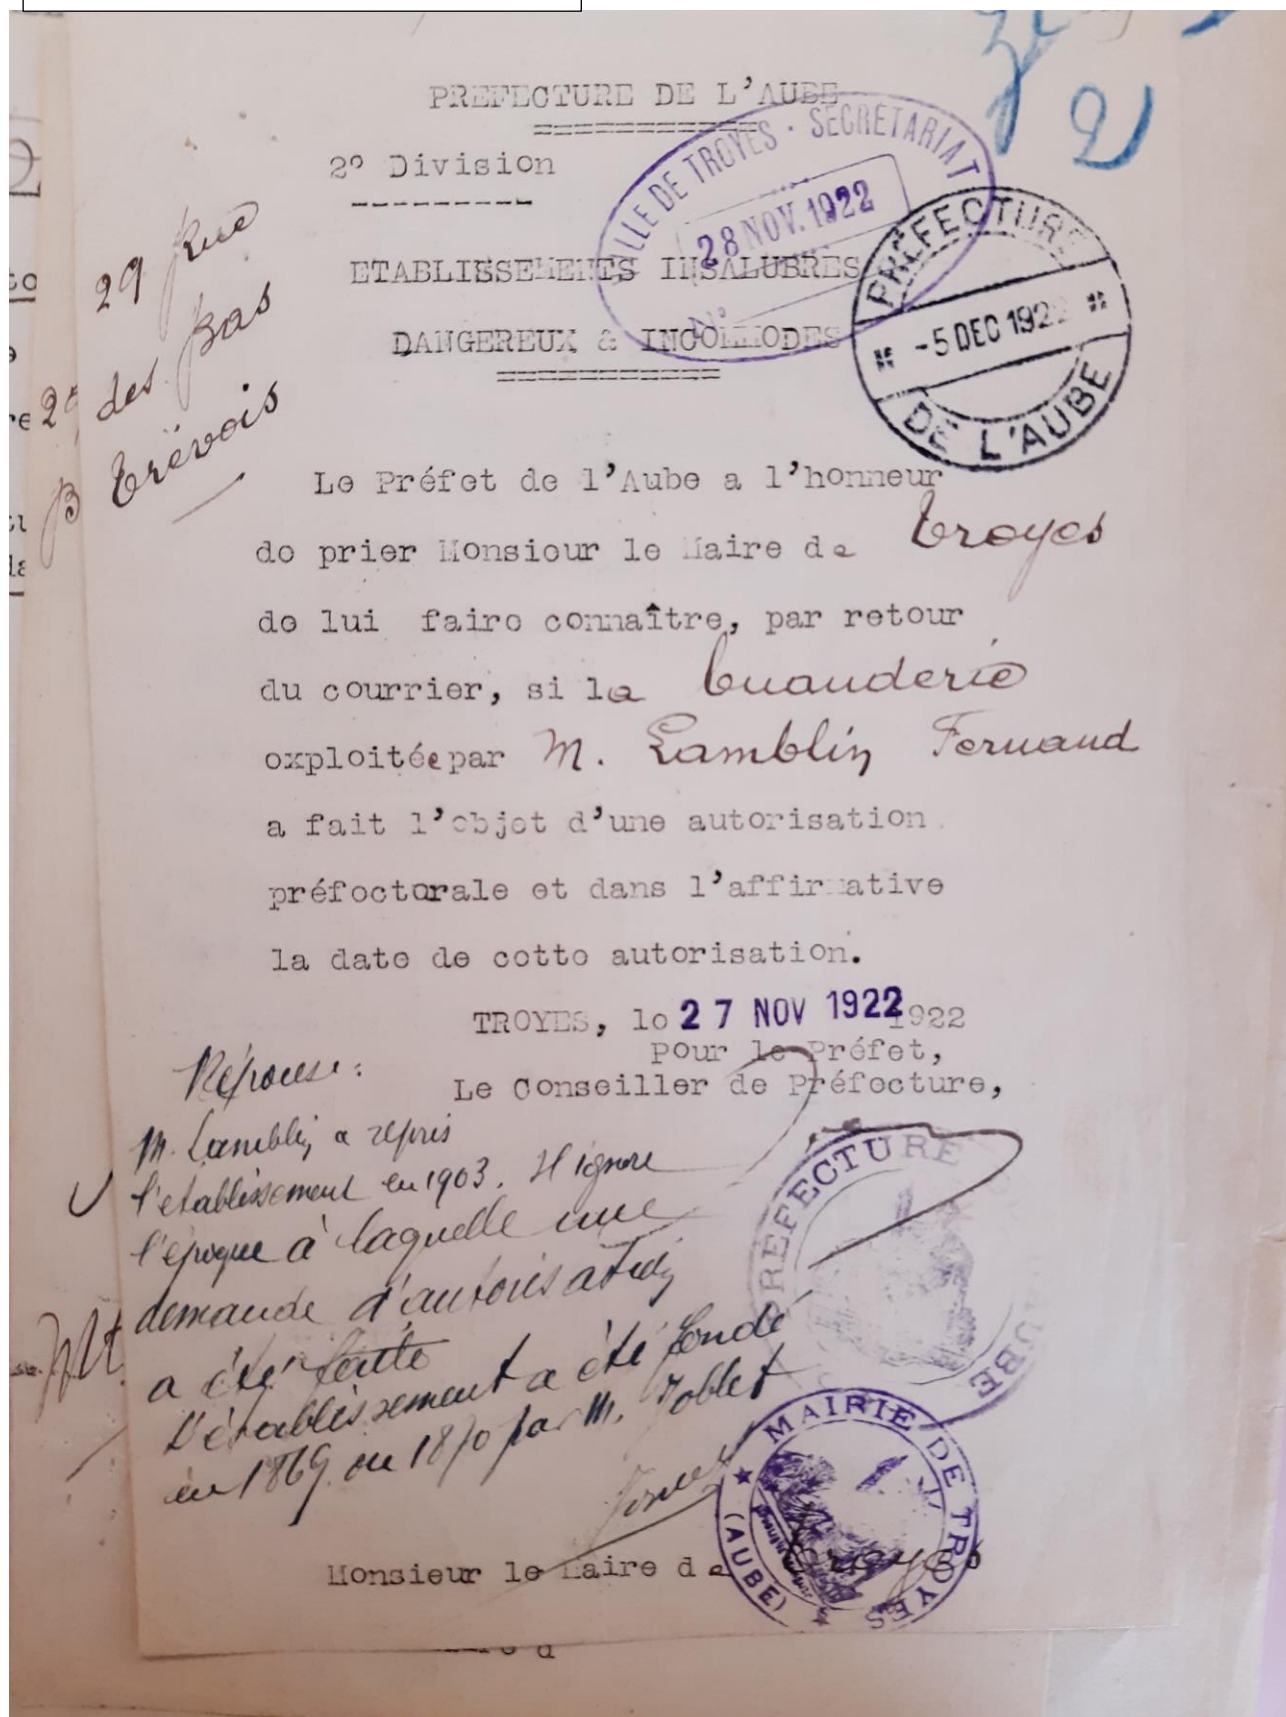 PREFECTURE DE L'AUBE
2º Division
VILLE DE TROYES · SECRETARIAT
28 NOV. 1922
Nº
PRÉFECTURE
- 5 DEC 1922
DE L'AUBE
ETABLISSEMENTS INSALUBRES
DANGEREUX & INCOMMODES
29 Rue
des Bas
Trévois
2
Le Préfet de l'Aube a l'honneur
de prier Monsieur le Maire de Troyes
de lui faire connaître, par retour
du courrier, si la buanderie
exploitée par M. Lamblin Fernand
a fait l'objet d'une autorisation
préfectorale et dans l'affirmative
la date de cette autorisation.
TROYES, le 27 NOV 1922 1922
Pour le Préfet,
Le Conseiller de Préfecture,
Réponse :
M. Lamblin a repris
l'établissement en 1903. Il ignore
l'époque à laquelle une
demande d'autorisation
a été faite
L'établissement a été fondé
en 1869 ou 1870 par M. Joblet
PREFECTURE
AUBE
MAIRIE DE TROYES
(AUBE)
Monsieur le Maire de Troyes